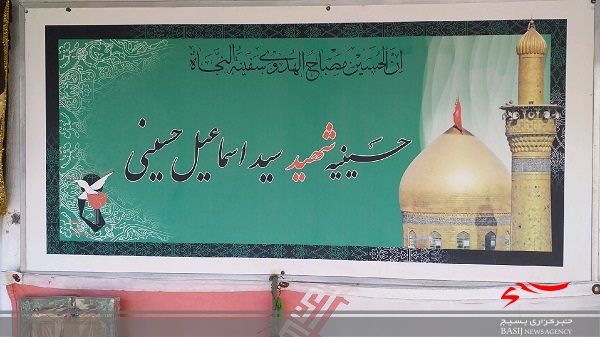 ان الحسین مصباح الهدی و سفینة النجاة
حسینیه شهید سید اسماعیل حسینی
خبرگزاری بسیج
BASIJ NEWS AGENCY